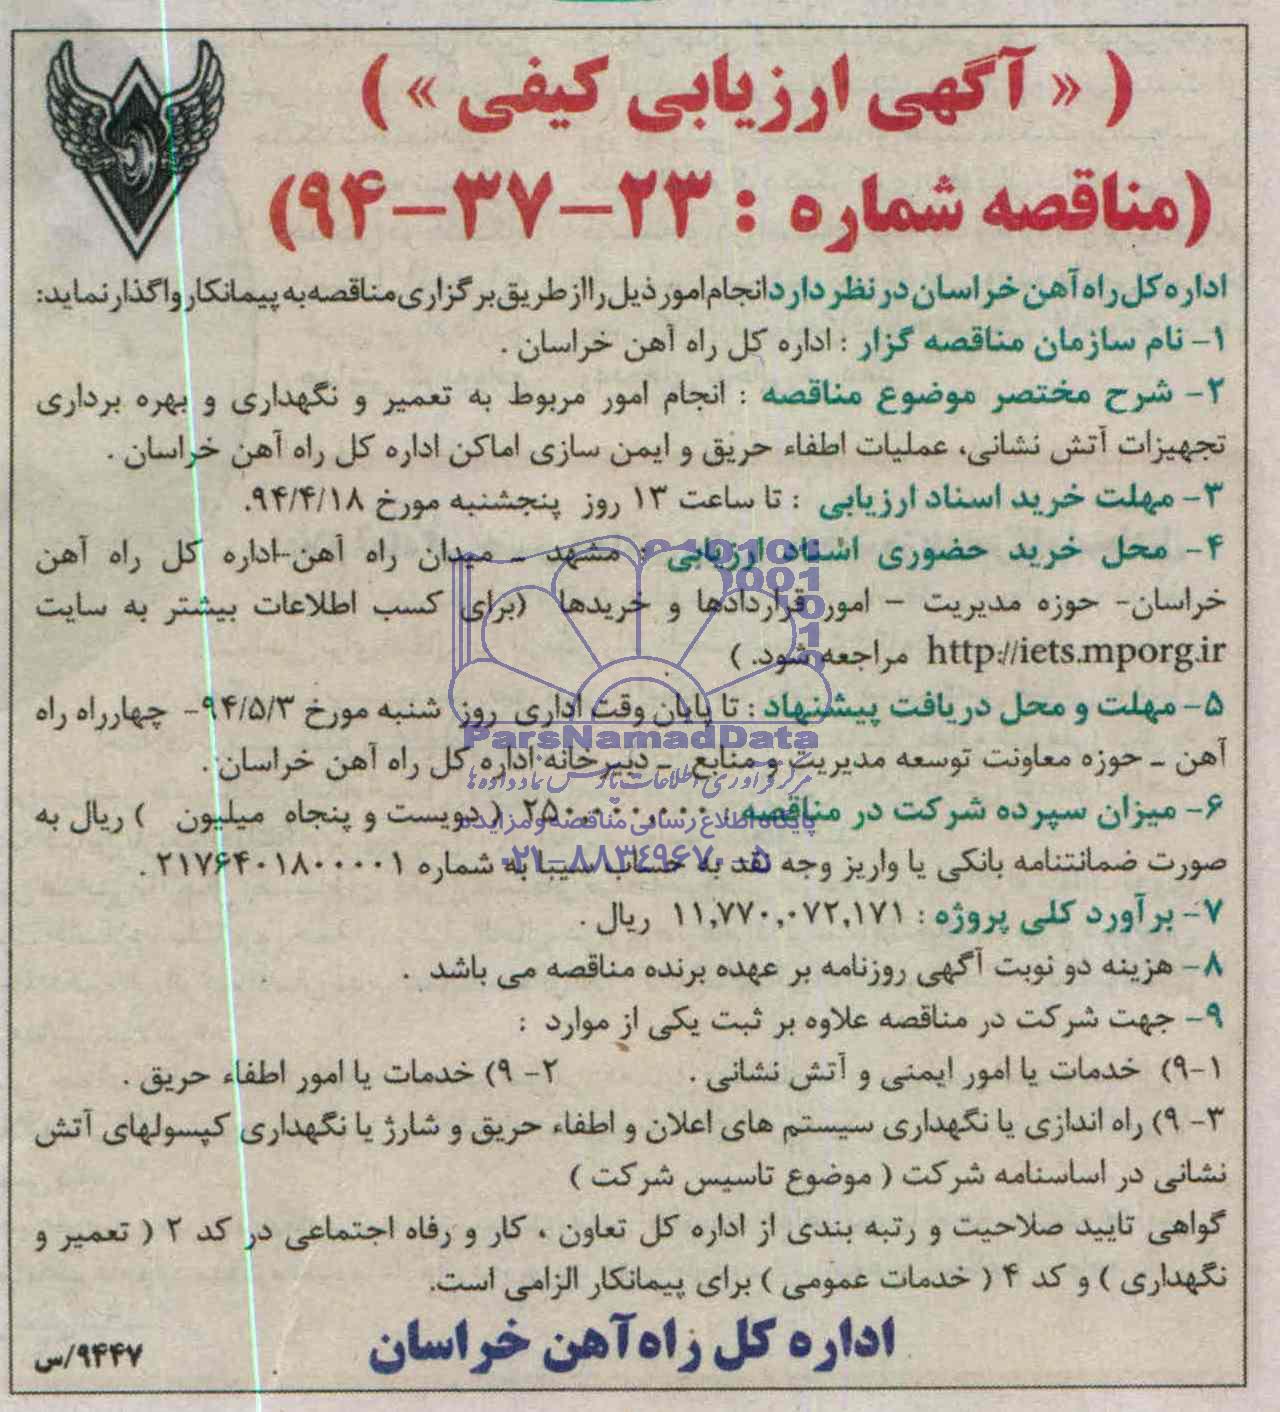 ( « آگهی ارزیابی کیفی » )
(مناقصه شماره : ۲۳-۳۷-۹۴)
اداره کل راه آهن خراسان در نظر دارد انجام امور ذیل را از طریق برگزاری مناقصه به پیمانکار واگذار نماید:
۱- نام سازمان مناقصه گزار : اداره کل راه آهن خراسان .
۲- شرح مختصر موضوع مناقصه : انجام امور مربوط به تعمیر و نگهداری و بهره برداری
تجهیزات آتش نشانی، عملیات اطفاء حریق و ایمن سازی اماکن اداره کل راه آهن خراسان .
۳- مهلت خرید اسناد ارزیابی : تا ساعت ۱۳ روز پنجشنبه مورخ ۹۴/۴/۱۸.
۴- محل خرید حضوری اسناد ارزیابی : مشهد - میدان راه آهن-اداره کل راه آهن
خراسان- حوزه مدیریت – امور قراردادها و خریدها (برای کسب اطلاعات بیشتر به سایت
http://iets.mporg.ir مراجعه شود. )
۵- مهلت و محل دریافت پیشنهاد : تا پایان وقت اداری روز شنبه مورخ ۹۴/۵/۳- چهارراه راه
آهن - حوزه معاونت توسعه مدیریت و منابع - دبیرخانه اداره کل راه آهن خراسان .
۶- میزان سپرده شرکت در مناقصه : ۲۵۰,۰۰۰,۰۰۰ ( دویست و پنجاه میلیون ) ریال به
صورت ضمانتنامه بانکی یا واریز وجه نقد به حساب سیبا به شماره ۲۱۷۶۴۰۱۸۰۰۰۰۱ .
۷- برآورد کلی پروژه : ۱۱,۷۷۰,۰۷۲,۱۷۱ ریال .
۸- هزینه دو نوبت آگهی روزنامه بر عهده برنده مناقصه می باشد .
۹- جهت شرکت در مناقصه علاوه بر ثبت یکی از موارد :
۹-۱) خدمات یا امور ایمنی و آتش نشانی . ۲- ۹) خدمات یا امور اطفاء حریق .
۳- ۹) راه اندازی یا نگهداری سیستم های اعلان و اطفاء حریق و شارژ یا نگهداری کپسولهای آتش
نشانی در اساسنامه شرکت ( موضوع تاسیس شرکت )
گواهی تایید صلاحیت و رتبه بندی از اداره کل تعاون ، کار و رفاه اجتماعی در کد ۲ ( تعمیر و
نگهداری ) و کد ۴ ( خدمات عمومی ) برای پیمانکار الزامی است.
اداره کل راه آهن خراسان
۹۴۴۷/س
ParsNamadData
مرکز فرآوری اطلاعات پارس نماد داده ها
پایگاه اطلاع رسانی مناقصه و مزایده
۰۲۱-۸۸۳۴۹۶۷۰-۵